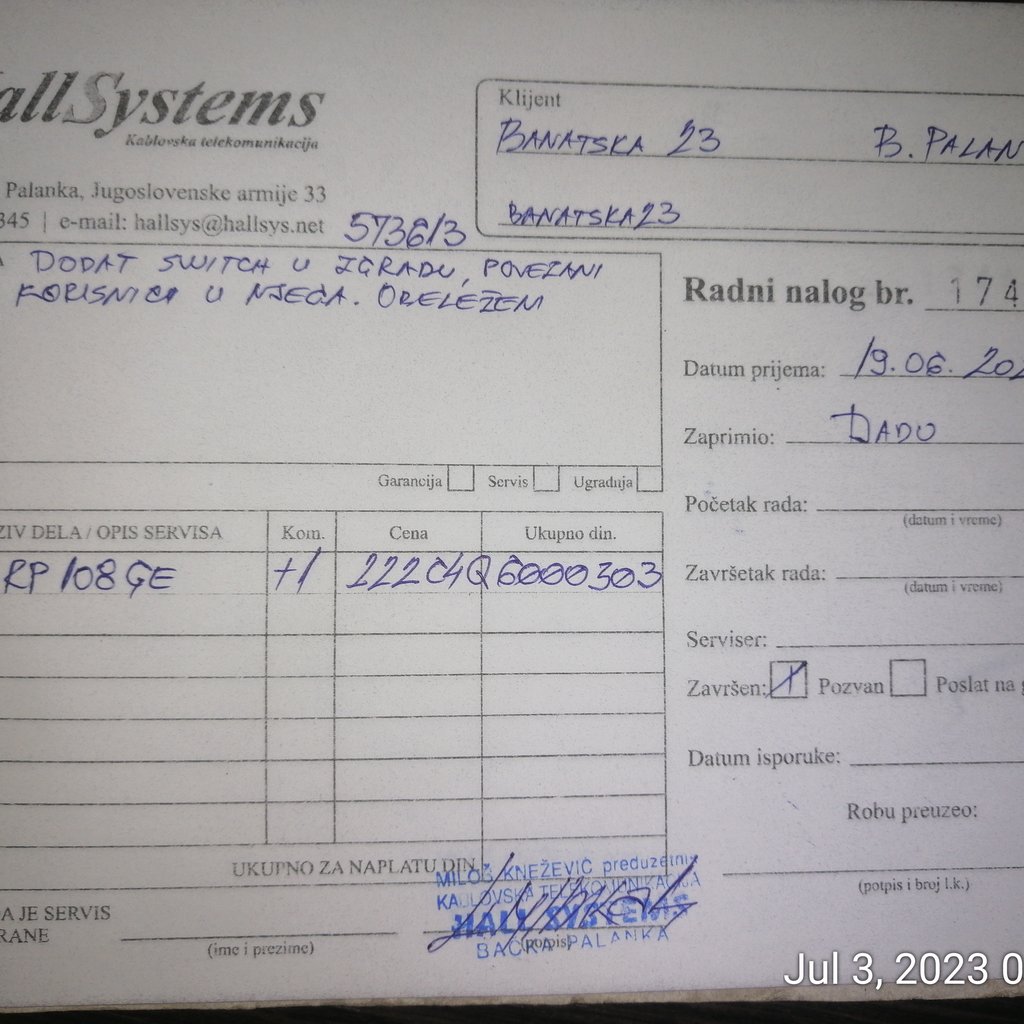 allSystems
Kablovska telekomunikacija
Palanka, Jugoslovenske armije 33
345 | e-mail: hallsys@hallsys.net
5736/3
Klijent
BANATSKA 23 B. PALAN
BANATSKA 23
DODAT SWITCH U ZGRADU, POVEZANI
KORISNICI U NJEGA. OBELEŽEN
Garancija Servis Ugradnja
Radni nalog br. 174
Datum prijema: 19.06. 202
Zaprimio: DADO
Početak rada:
(datum i vreme)
Završetak rada:
(datum i vreme)
Serviser:
Završen: Pozvan Poslat na g
Datum isporuke:
Robu preuzeo:
(potpis i broj l.k.)
ZIV DELA / OPIS SERVISA Kom. Cena Ukupno din.
RP108GE +1 222C4Q6000303
UKUPNO ZA NAPLATU DIN.
A JE SERVIS
RANE
(ime i prezime)
(potpis)
MILOŠ KNEŽEVIĆ preduzetnik
KABLOVSKA TELEKOMUNIKACIJA
HALL SYSTEMS
BAČKA PALANKA
Jul 3, 2023 0